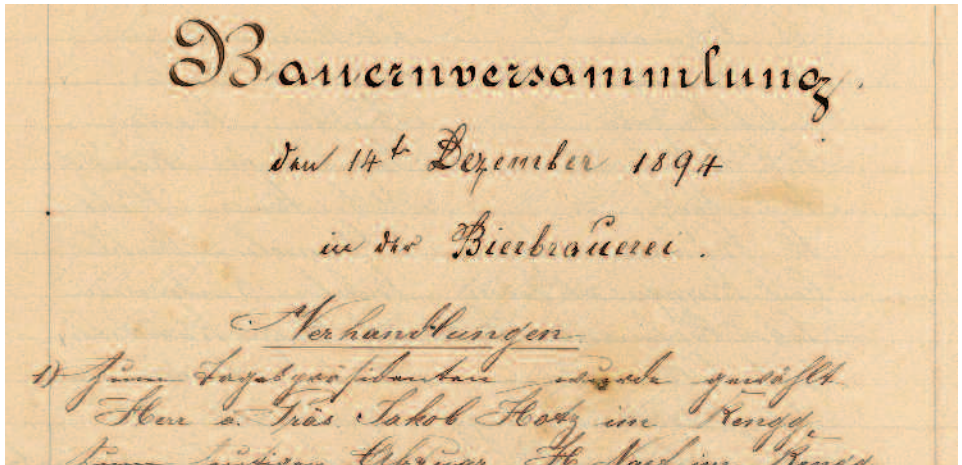 Bauernversammlung.
den 14t Dezember 1894
in der Bierbrauerei.
Verhandlungen
1) Zum Tagespräsidenten wurde gewählt
Herr a. Präs. Jakob Hotz im Rengg,
zum H. Näf im Rengg